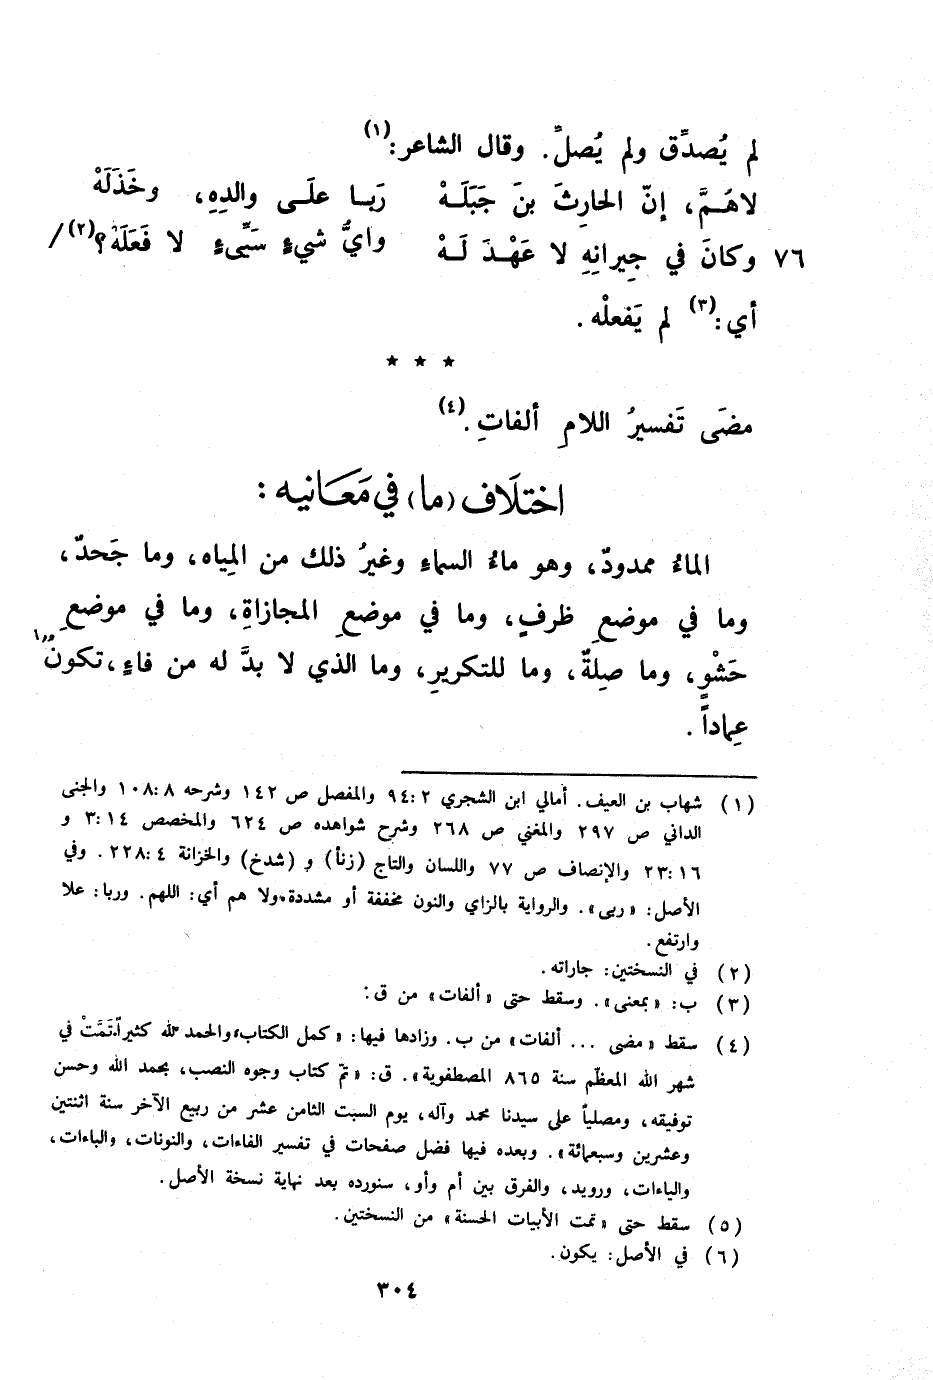 لم يُصدِّق ولم يُصلِّ. وقال الشاعر:(١)
لاهُـمَّ، إنّ الحارِثَ بنَ جَبَلَـهْ رَبـا علَـى والدِهِ، وخَذَلَهْ
٧٦ وكانَ في جِيرانِهِ لا عَهْـدَ لَـهْ وايُّ شيءٍ سَيِّىءٍ لا فَعَلَهْ؟(٢)/
أي:(٣) لم يَفعلْه.
٭ ٭ ٭
مضَى تَفسيرُ اللامِ ألفاتِ.(٤)
اختلَاف (ما) في مَعَانيه:
الماءُ ممدودٌ، وهو ماءُ السماءِ وغيرُ ذلك من المِياه، وما جَحدٌ،
وما في موضعِ ظرفٍ، وما في موضعِ المجازاةِ، وما في موضعِ
حَشْوٍ، وما صِلةٌ، وما للتكريرِ، وما الذي لا بدَّ له من فاءٍ، تكونُ
عِماداً.
(١) شهاب بن العيف. أمالي ابن الشجري ٢:٩٤ والمفصل ص ١٤٢ وشرحه ٨:١٠٨ والجنى
الداني ص ٢٩٧ والمغني ص ٢٦٨ وشرح شواهده ص ٦٢٤ والمخصص ١٤:٣ و
١٦:٢٣ والإنصاف ص ٧٧ واللسان والتاج (زنأ) و (شدخ) والخزانة ٤:٢٢٨. وفي
الأصل: «ربى». والرواية بالزاي والنون مخففة أو مشددة. ولا هم أي: اللهم. وربا: علا
وارتفع.
(٢) في النسختين: جاراته.
(٣) ب: «بمعنى». وسقط حتى «ألفات» من ق:
(٤) سقط «مضى ... ألفات» من ب. وزادها فيها: «كمل الكتاب، والحمد لله كثيراً. تَمَّتْ في
شهر الله المعظّم سنة ٨٦٥ المصطفوية». ق: «تمّ كتاب وجوه النصب، بحمد الله وحسن
توفيقه، ومصلياً على سيدنا محمد وآله، يوم السبت الثامن عشر من ربيع الآخر سنة اثنتين
وعشرين وسبعمائة». وبعده فيها فضل صفحات في تفسير الفاءات، والنونات، والباءات،
والياءات، ورويد، والفرق بين أم وأو، سنورده بعد نهاية نسخة الأصل.
(٥) سقط حتى «تمت الأبيات الحسنة» من النسختين.
(٦) في الأصل: يكون.
٣٠٤